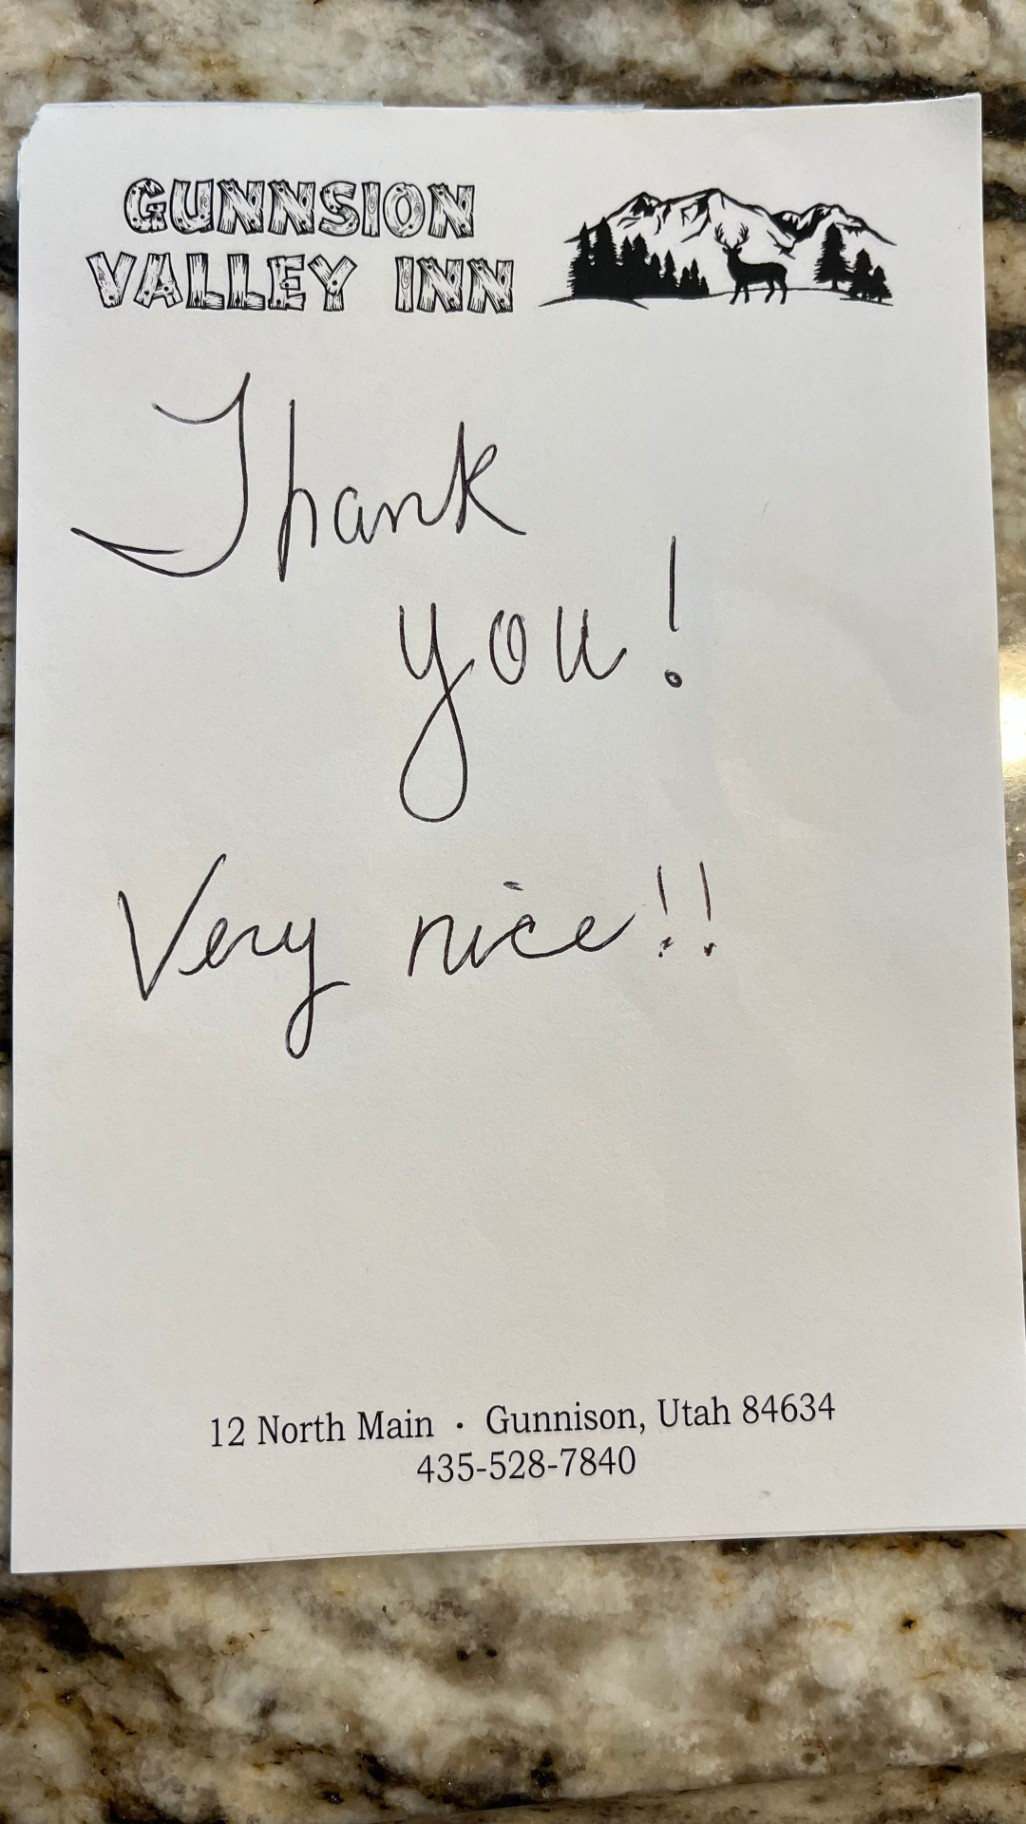 GUNNSION
VALLEY INN
Thank
you!
Very nice!!
12 North Main · Gunnison, Utah 84634
435-528-7840